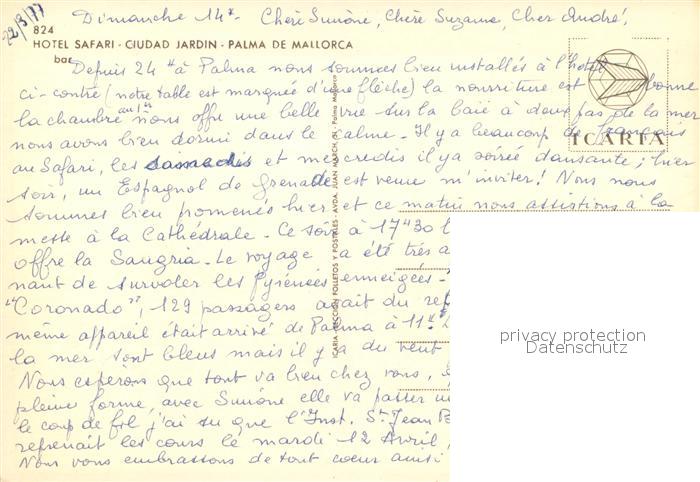 22/3/77
Dimanche 14h Chère Simone, Chère Suzanne, Cher André,
824
HOTEL SAFARI - CIUDAD JARDIN - PALMA DE MALLORCA
Depuis 24h à Palma nous sommes bien installés à l'hotel
ci-contre (notre table est marquée d'une flèche) la nourriture est bonne
la chambre au 1er nous offre une belle vue sur la baie à deux pas de la mer
nous avons bien dormi dans le calme - Il y a beaucoup de français
ICARIA
au Safari, les samedis et mercredis il y a soirée dansante; hier
soir, un Espagnol de Grenade est venu m'inviter! Nous nous
sommes bien promenés hier et ce matin nous assistions à la
messe à la Cathédrale - Ce soir à 17h30 l
offre la Sangria - Le voyage a été très a
nant de survoler les Pyrénées enneigées -
"Coronado", 129 passagers avait du re
même appareil était arrivé de Palma à 11h
la mer sont bleus mais il y a du vent
Nous espérons que tout va bien chez vous,
pleine forme, avec Simone elle va passer u
le coup de fil j'ai su que l'Inst. St Jean B
reprenait les cours le mardi 12 Avril,
Nous vous embrassons de tout coeur ainsi
ICARIA SECCION FOLLETOS Y POSTALES - AVDA. JUAN MARCH, Palma Mallorca
privacy protection
Datenschutz